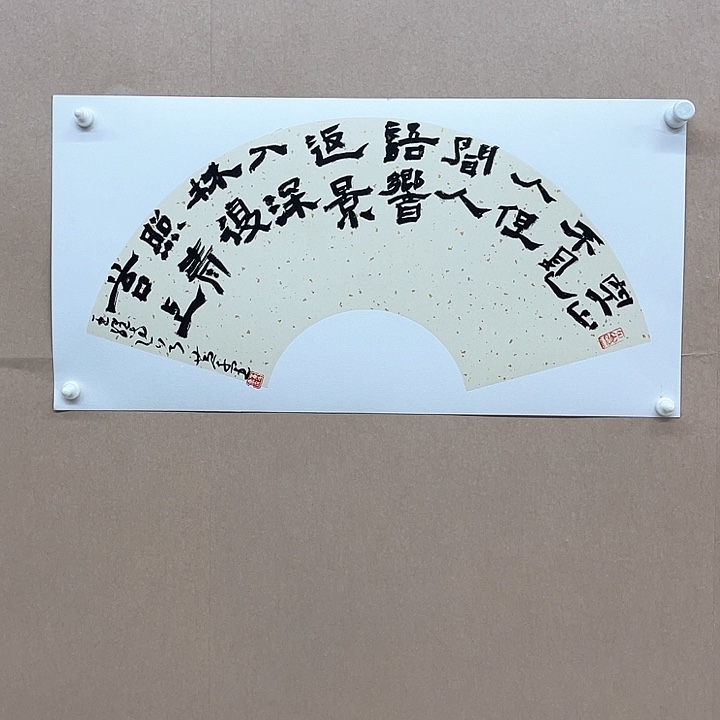 空山
不見
人但
聞人
語響
返景
入深
林復
照青
苔上